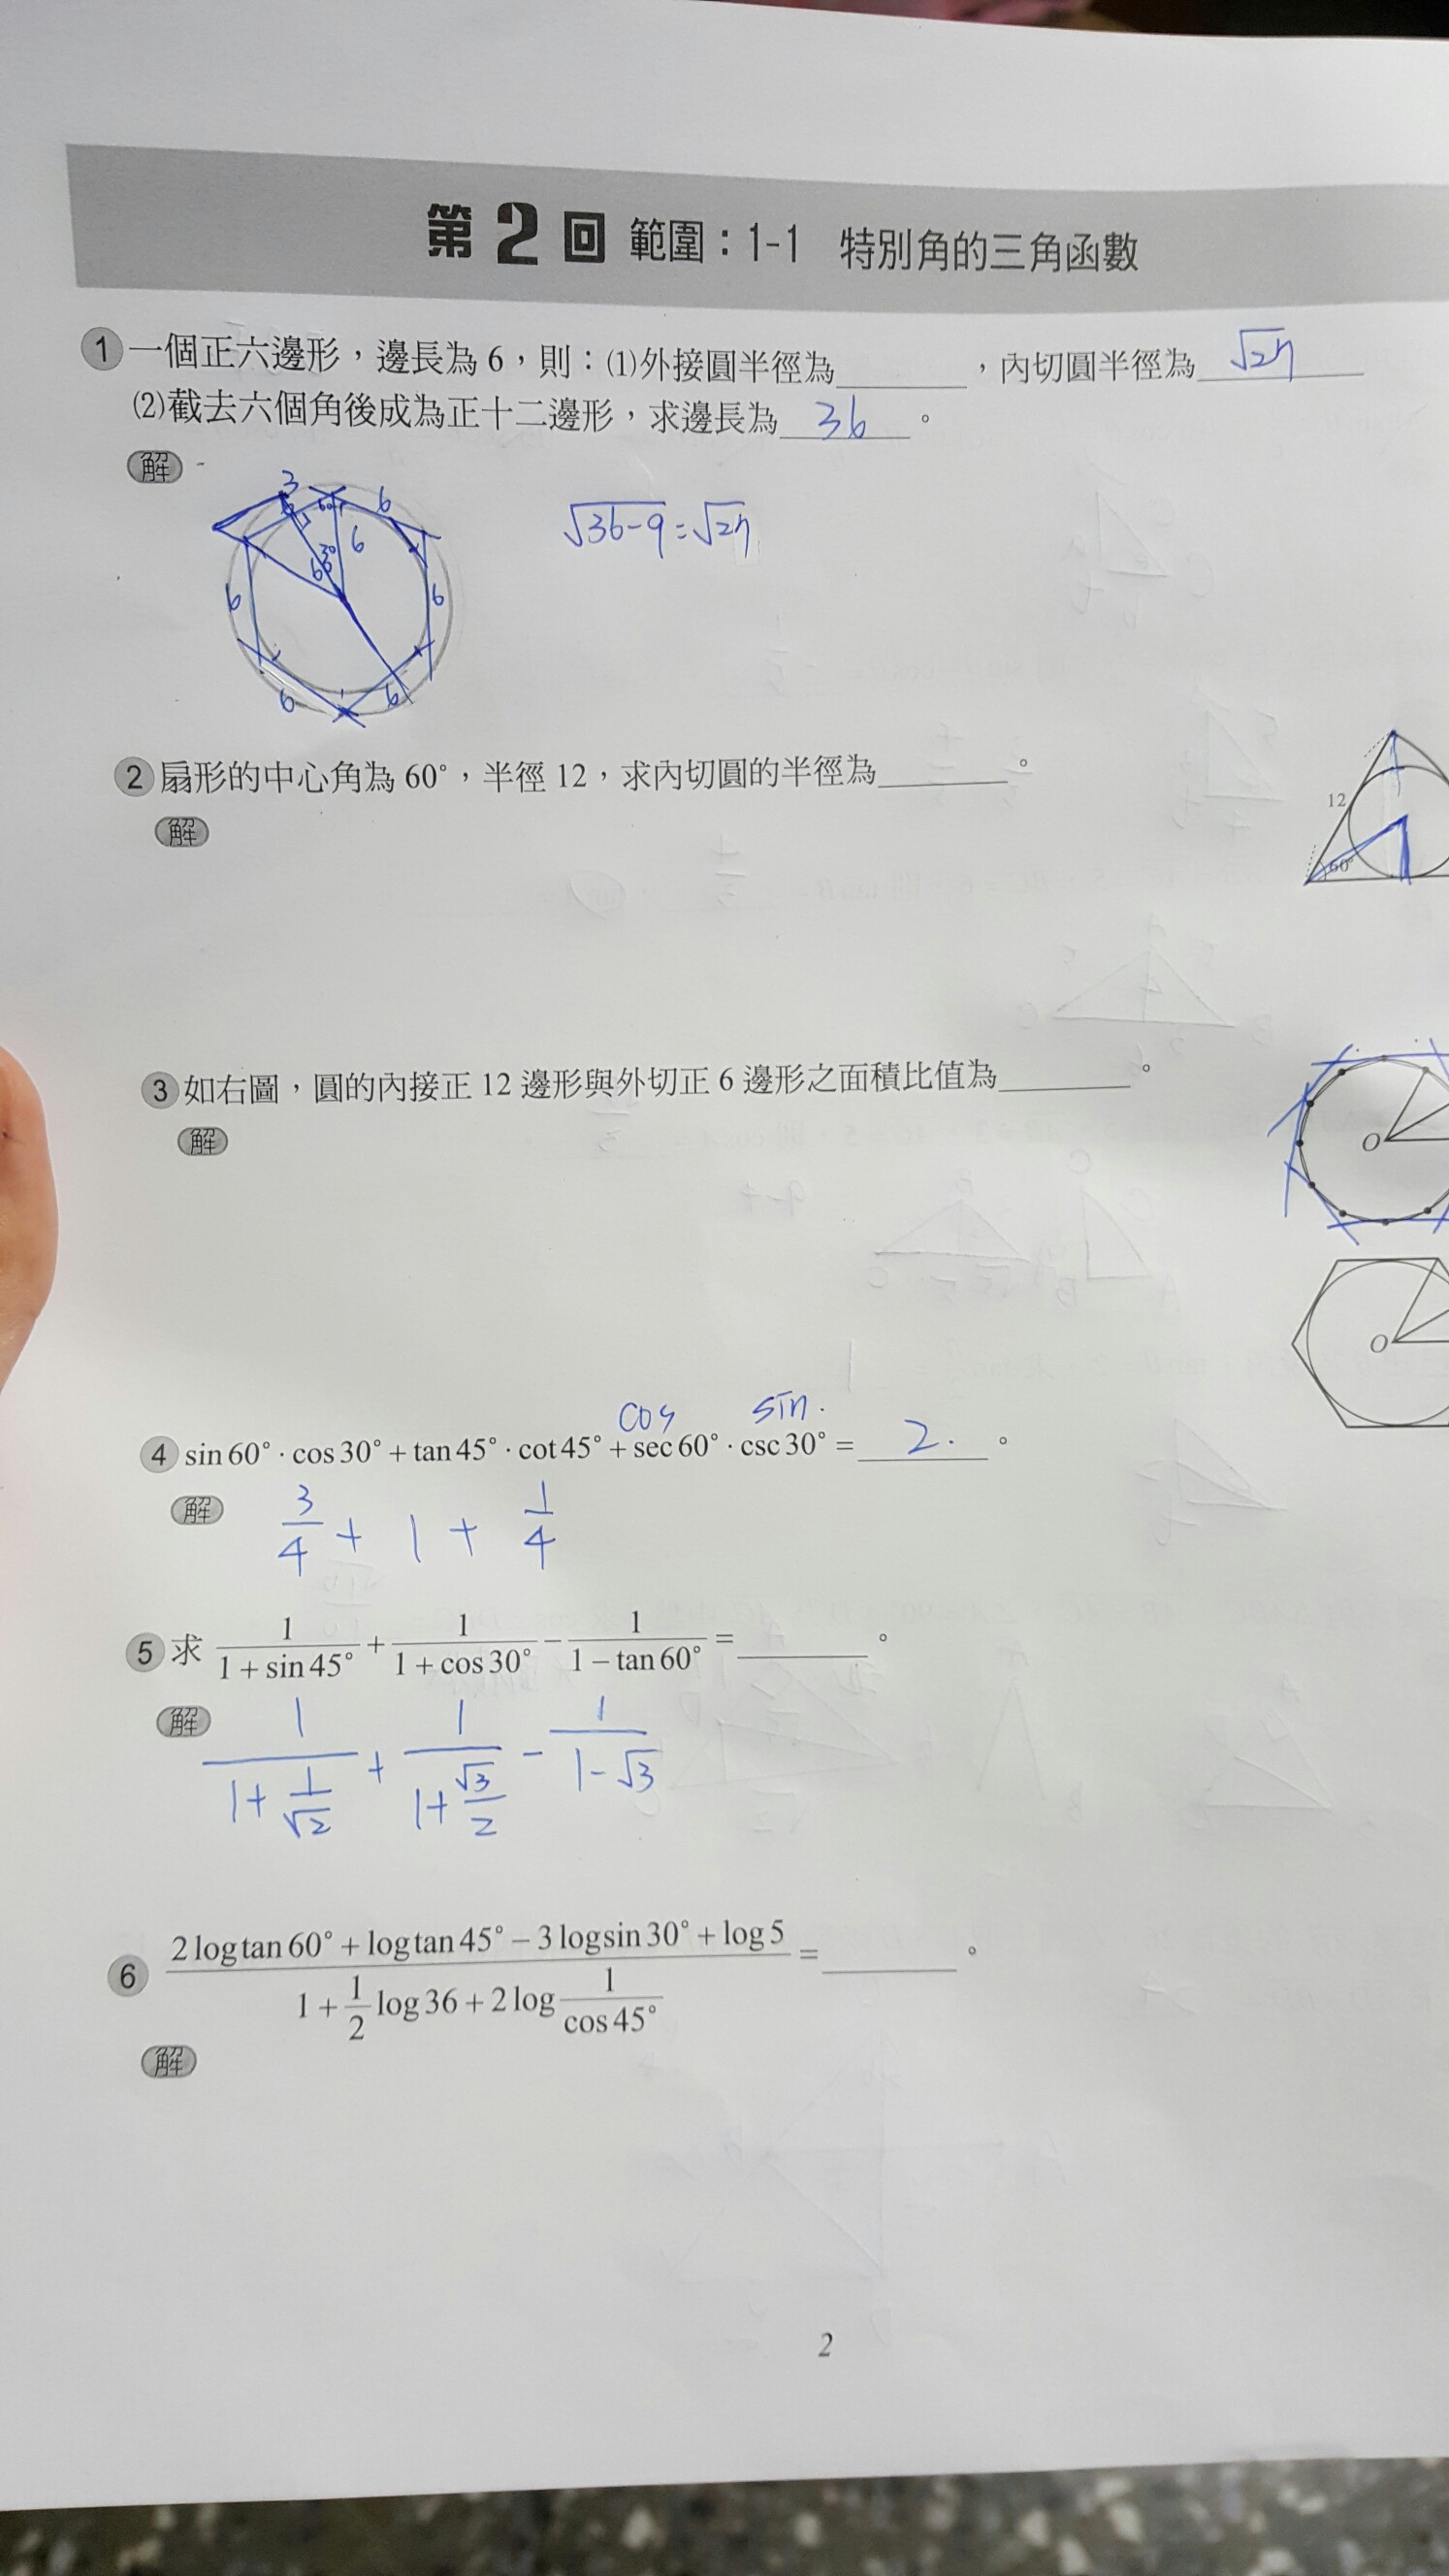 第2回 範圍：1-1 特別角的三角函數
1 一個正六邊形，邊長為 6，則：(1)外接圓半徑為________，內切圓半徑為 √27
(2)截去六個角後成為正十二邊形，求邊長為 36 。
解
3
6
6
6
6
6
6
30°
√36-9 = √27
2 扇形的中心角為 60°，半徑 12，求內切圓的半徑為________。
12
60°
解
3 如右圖，圓的內接正 12 邊形與外切正 6 邊形之面積比值為________。
解
O
O
cos sin.
4 sin 60° · cos 30° + tan 45° · cot 45° + sec 60° · csc 30° = 2. 。
解
3/4 + 1 + 1/4
5 求 1/(1 + sin 45°) + 1/(1 + cos 30°) − 1/(1 − tan 60°) = ________。
解
1/(1+1/√2) + 1/(1+√3/2) - 1/(1-√3)
6 (2 log tan 60° + log tan 45° − 3 log sin 30° + log 5)/(1 + 1/2 log 36 + 2 log 1/cos 45°) = ________。
解
2